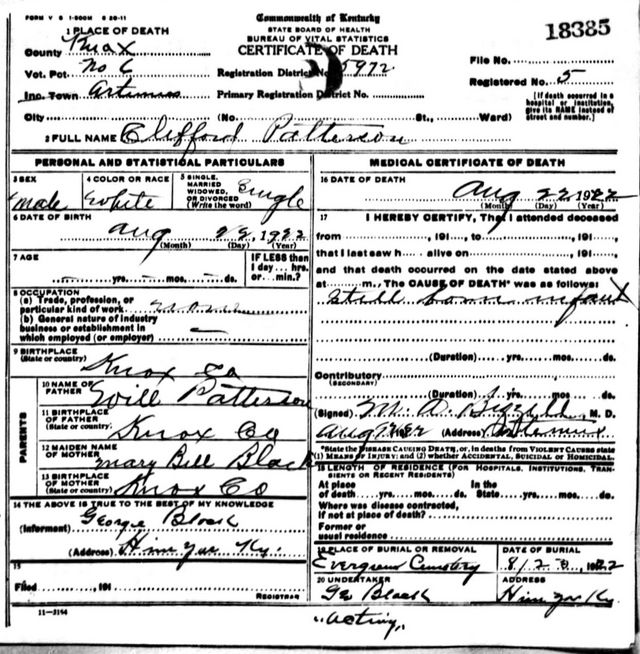 FORM V S 1-500M 5 20-11
Commonwealth of Kentucky
STATE BOARD OF HEALTH
BUREAU OF VITAL STATISTICS
CERTIFICATE OF DEATH
18385
1 PLACE OF DEATH
County Knox
Vot. Pct No 6
Registration District No. 5972
File No.
Inc. Town Artemus
Primary Registration District No.
Registered No. 5
City (No. St., Ward)
[If death occurred in a hospital or institution, give its NAME instead of street and number.]
2 FULL NAME Clifford Patterson
PERSONAL AND STATISTICAL PARTICULARS
3 SEX
male
4 COLOR OR RACE
White
5 SINGLE, MARRIED WIDOWED, OR DIVORCED (Write the word)
Single
6 DATE OF BIRTH
Aug 22, 1922
(Month) (Day) (Year)
7 AGE
yrs. mos. ds.
IF LESS than 1 day... hrs. or... min.?
8 OCCUPATION
(a) Trade, profession, or particular kind of work
(b) General nature of industry business or establishment in which employed (or employer)
9 BIRTHPLACE
(State or country)
Knox Co
PARENTS
10 NAME OF FATHER Will Patterson
11 BIRTHPLACE OF FATHER (State or country) Knox Co
12 MAIDEN NAME OF MOTHER Mary Bell Black
13 BIRTHPLACE OF MOTHER (State or country) Knox Co
14 THE ABOVE IS TRUE TO THE BEST OF MY KNOWLEDGE
(Informent) George Black
(Address) Himyar Ky.
15
Filed, 191
REGISTRAR
11-3184
MEDICAL CERTIFICATE OF DEATH
16 DATE OF DEATH
Aug 22 1922
(Month) (Day) (Year)
17 I HEREBY CERTIFY, That I attended deceased
from, 191, to, 191,
that I last saw h alive on, 191,
and that death occurred on the date stated above
at m., The CAUSE OF DEATH* was as follows:
Still born infant
(Duration) yrs. mos. ds.
Contributory
(SECONDARY)
(Duration) yrs. mos. ds.
(Signed) M. D.
(Address) Artemus
*State the DISEASE CAUSING DEATH, or, in deaths from VIOLENT CAUSES state
(1) MEANS OF INJURY; and (2) whether ACCIDENTAL, SUICIDAL OR HOMICIDAL.
18 LENGTH OF RESIDENCE (FOR HOSPITALS, INSTITUTIONS, TRANSIENTS OR RECENT RESIDENTS)
At place of death yrs. mos. ds. In the State yrs. mos. ds.
Where was disease contracted,
If not at place of death?
Former or
usual residence
19 PLACE OF BURIAL OR REMOVAL
Evergreen Cemetery
DATE OF BURIAL
8/23, 1922
20 UNDERTAKER
Ge Black
ADDRESS
Himyar Ky
"Acting"